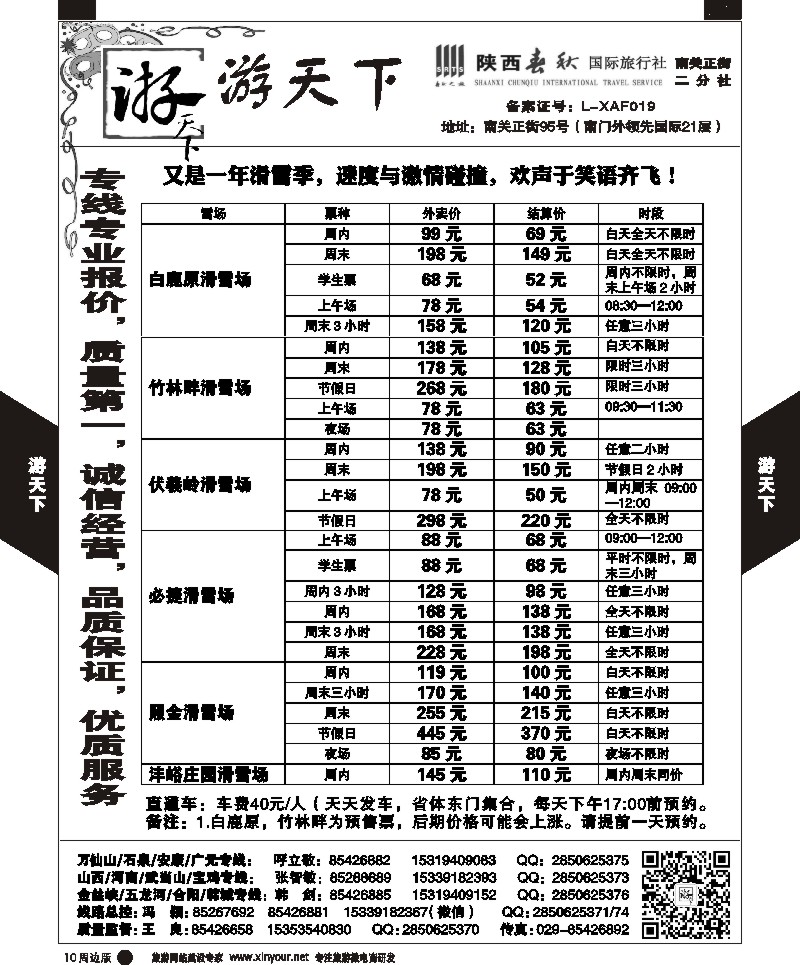 游天下
游天下
陕西春秋国际旅行社 南关正街二分社
SHAANXI CHUNQIU INTERNATIONAL TRAVEL SERVICE
备案证号：L-XAF019
地址：南关正街95号（南门外领先国际21层）
专线专业报价，质量第一，诚信经营，品质保证，优质服务
又是一年滑雪季，速度与激情碰撞，欢声于笑语齐飞！
雪场 票种 外卖价 结算价 时段
白鹿原滑雪场
周内 99元 69元 白天全天不限时
周末 198元 149元 白天全天不限时
学生票 68元 52元 周内不限时，周末上午场2小时
上午场 78元 54元 08:30—12:00
周末3小时 158元 120元 任意三小时
竹林畔滑雪场
周内 138元 105元 白天不限时
周末 178元 128元 限时三小时
节假日 268元 180元 限时三小时
上午场 78元 63元 09:30—11:30
夜场 78元 63元
伏羲岭滑雪场
周内 138元 90元 任意二小时
周末 198元 150元 节假日2小时
上午场 78元 50元 周内周末 09:00—12:00
节假日 298元 220元 全天不限时
必捷滑雪场
上午场 88元 68元 09:00—12:00
学生票 88元 68元 平时不限时，周末三小时
周内3小时 128元 98元 任意三小时
周内 168元 138元 全天不限时
周末3小时 168元 138元 任意三小时
周末 228元 198元 全天不限时
照金滑雪场
周内 119元 100元 白天不限时
周末三小时 170元 140元 任意三小时
周末 255元 215元 白天不限时
节假日 445元 370元 白天不限时
夜场 85元 80元 夜场不限时
沣峪庄园滑雪场 周内 145元 110元 周内周末同价
直通车：车费40元/人（天天发车，省体东门集合，每天下午17:00前预约。
备注：1.白鹿原，竹林畔为预售票，后期价格可能会上涨。请提前一天预约。
万仙山/石泉/安康/广元专线： 呼立敏：85426882 15319409083 QQ：2850625375
山西/河南/武当山/宝鸡专线： 张智敏：85266689 15339182393 QQ：2850625373
金丝峡/五龙河/合阳/韩城专线：韩 剑：85426885 15319409152 QQ：2850625376
线路总控：冯 颖：85267692 85426881 15339182367（微信） QQ：2850625371/74
质量监督：王 良：85426658 15353540830 QQ：2850625370 传真：029-85426892
游天下
游天下
10周边版 旅游网站建设专家 www.xinyour.net 专注旅游微电商研发